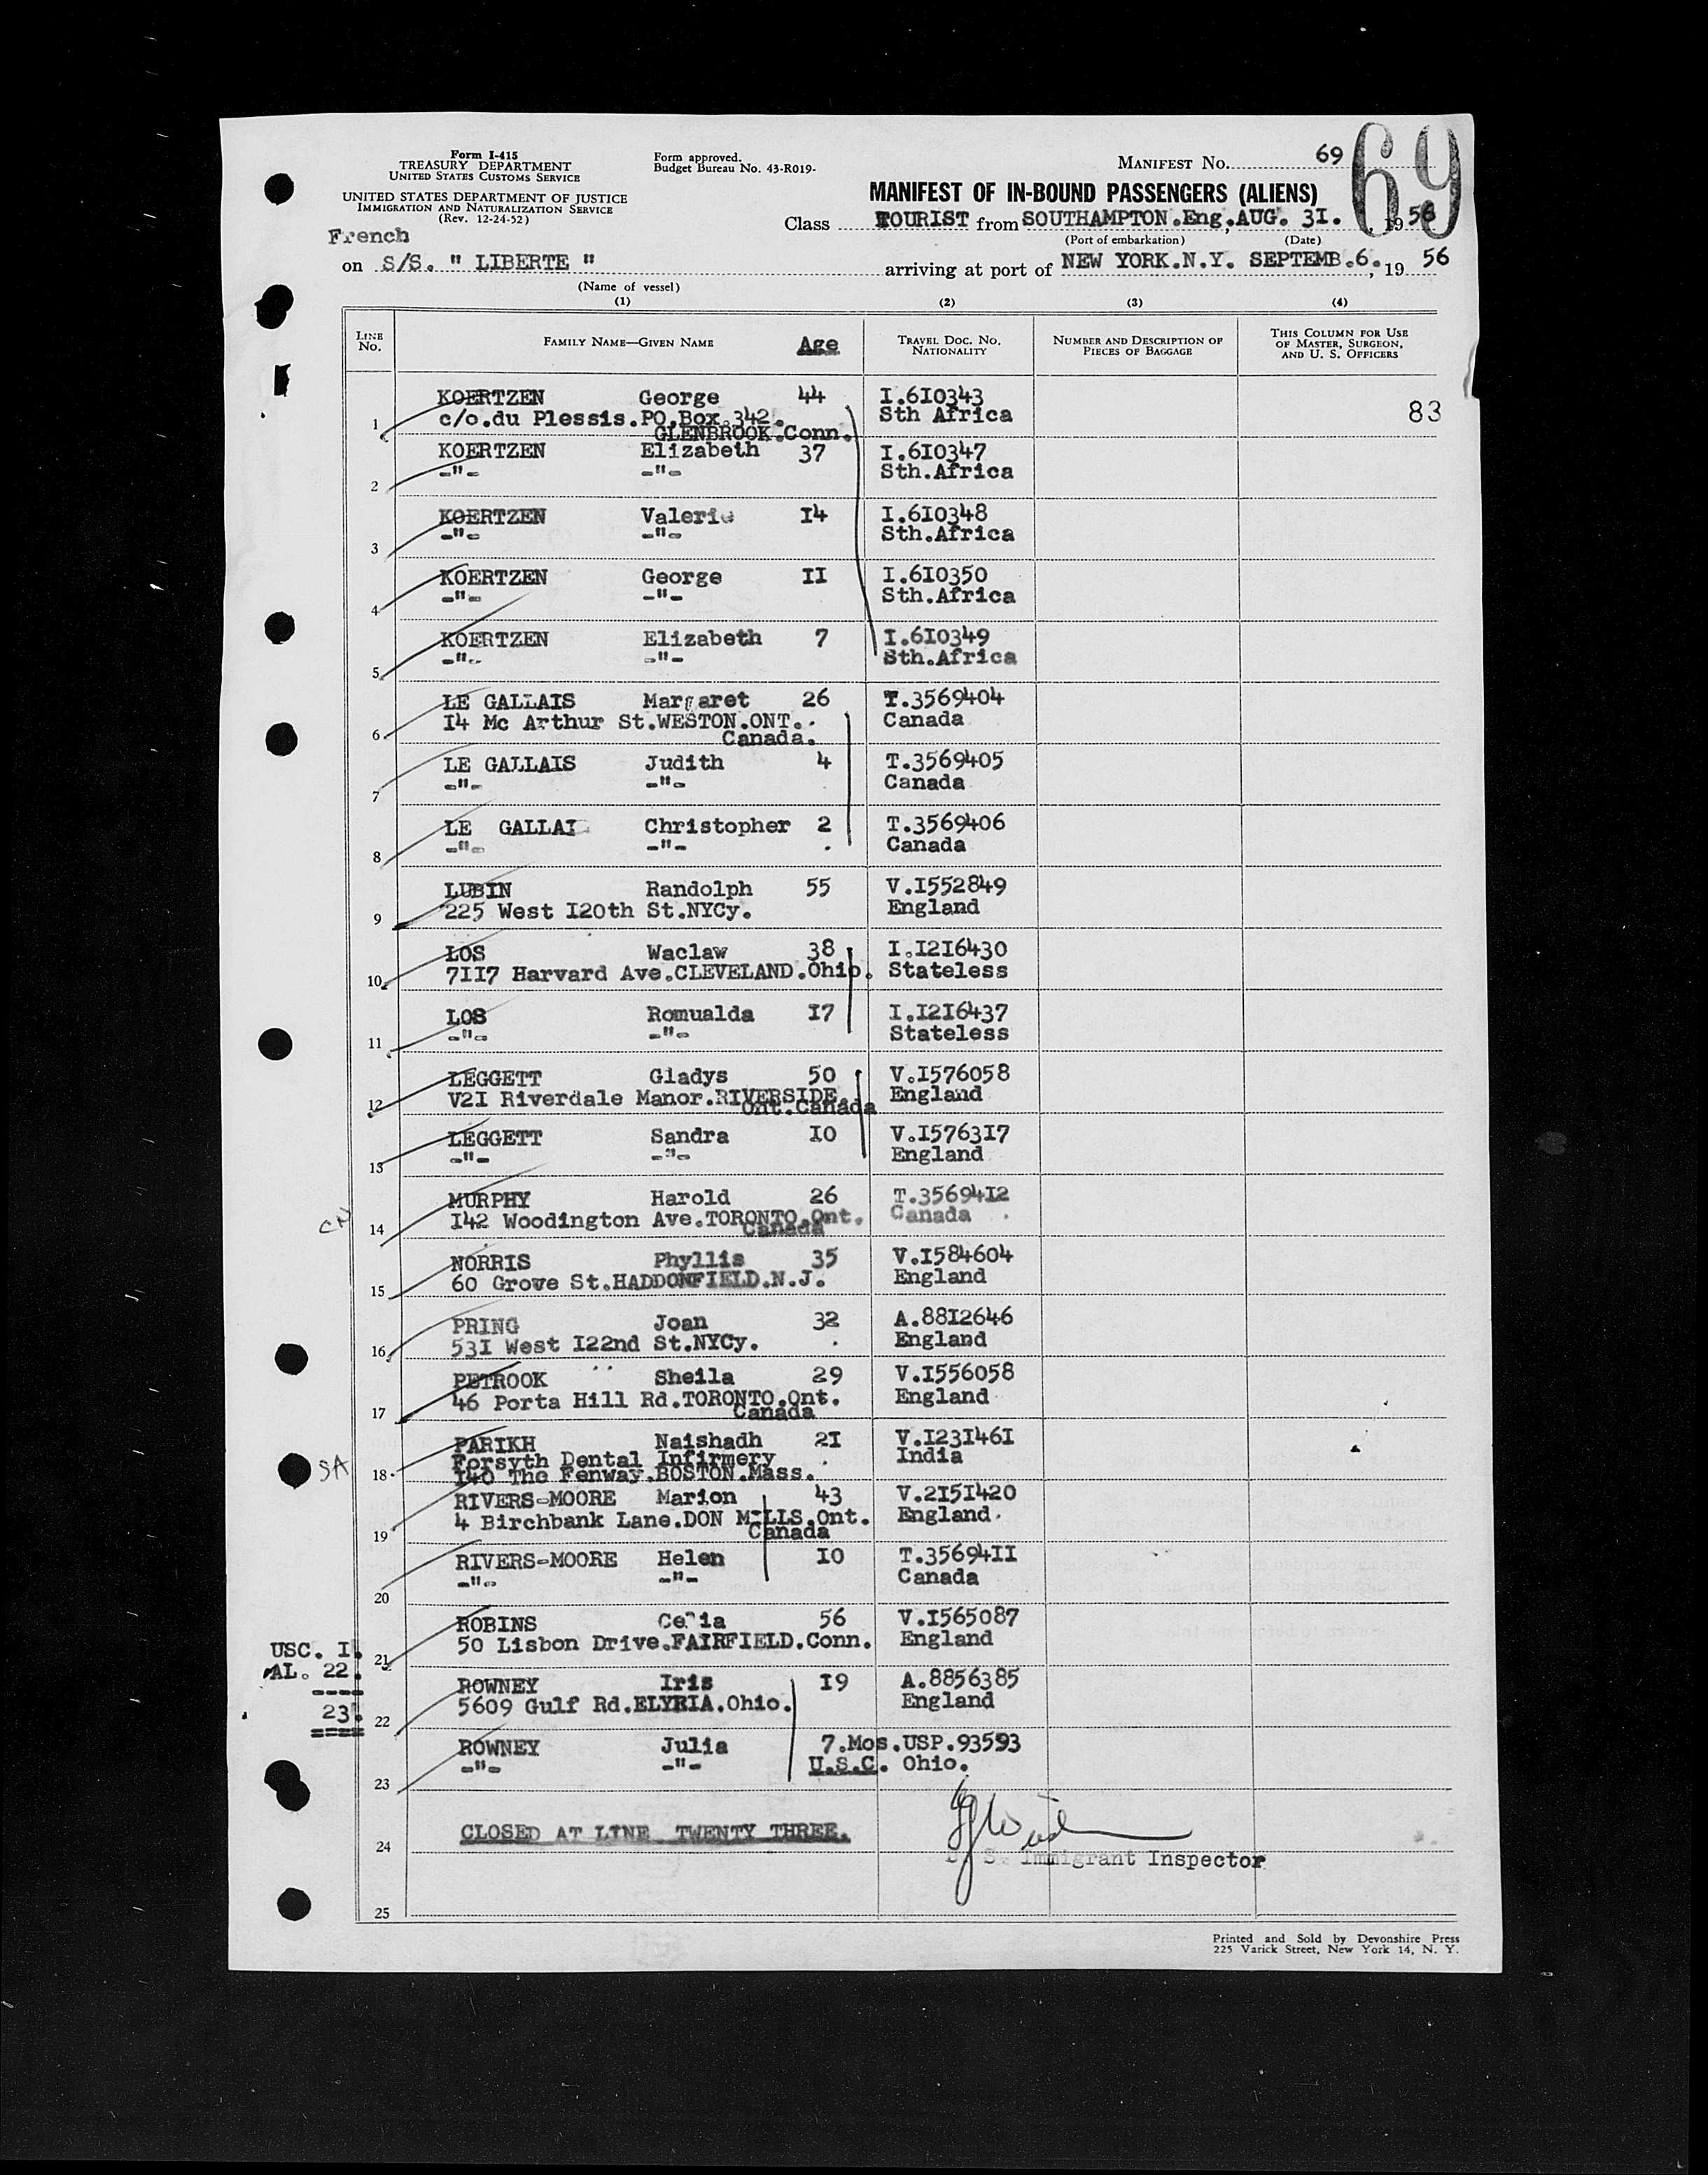 Form I-415
TREASURY DEPARTMENT
UNITED STATES CUSTOMS SERVICE
UNITED STATES DEPARTMENT OF JUSTICE
IMMIGRATION AND NATURALIZATION SERVICE
(Rev. 12-24-52)
Form approved.
Budget Bureau No. 43-R019-
MANIFEST No. 69
69
MANIFEST OF IN-BOUND PASSENGERS (ALIENS)
Class TOURIST from SOUTHAMPTON.Eng, AUG. 3I. , 1956
(Port of embarkation) (Date)
French
on S/S. " LIBERTE " arriving at port of NEW YORK.N.Y. SEPTEMB.6., 19 56
(Name of vessel)
(1) (2) (3) (4)
LINE No. FAMILY NAME—GIVEN NAME Age TRAVEL DOC. NO. NATIONALITY NUMBER AND DESCRIPTION OF PIECES OF BAGGAGE THIS COLUMN FOR USE OF MASTER, SURGEON, AND U. S. OFFICERS
1 KOERTZEN George 44 I.6I0343
c/o.du Plessis.PO.Box.342. Sth Africa 83
GLENBROOK.Conn.
2 KOERTZEN Elizabeth 37 I.6I0347
-"- -"- Sth.Africa
3 KOERTZEN Valerie I4 I.6I0348
-"- -"- Sth.Africa
4 KOERTZEN George II I.6I0350
-"- -"- Sth.Africa
5 KOERTZEN Elizabeth 7 I.6I0349
-"- -"- Sth.Africa
6 LE GALLAIS Margaret 26 T.3569404
I4 Mc Arthur St.WESTON.ONT. Canada
Canada.
7 LE GALLAIS Judith 4 T.3569405
-"- -"- Canada
8 LE GALLAI Christopher 2 T.3569406
-"- -"- Canada
9 LUBIN Randolph 55 V.I552849
225 West I20th St.NYCy. England
10 LOS Waclaw 38 I.I2I6430
7II7 Harvard Ave.CLEVELAND.Ohio. Stateless
11 LOS Romualda I7 I.I2I6437
-"- -"- Stateless
12 LEGGETT Gladys 50 V.I576058
V2I Riverdale Manor.RIVERSIDE. England
Ont.Canada
13 LEGGETT Sandra I0 V.I5763I7
-"- -"- England
CN
14 MURPHY Harold 26 T.35694I2
I42 Woodington Ave.TORONTO.Ont. Canada
Canada
15 NORRIS Phyllis 35 V.I584604
60 Grove St.HADDONFIELD.N.J. England
16 PRING Joan 32 A.88I2646
53I West I22nd St.NYCy. England
17 PETROOK Sheila 29 V.I556058
46 Porta Hill Rd.TORONTO.Ont. England
Canada
SA
18 PARIKH Naishadh 2I V.I23I46I
Forsyth Dental Infirmery India
I40 The Fenway.BOSTON.Mass.
19 RIVERS-MOORE Marion 43 V.2I5I420
4 Birchbank Lane.DON MILLS.Ont. England.
Canada
20 RIVERS-MOORE Helen I0 T.35694II
-"- -"- Canada
21 ROBINS Celia 56 V.I565087
50 Lisbon Drive.FAIRFIELD.Conn. England
USC. I.
AL. 22.
----
23.
====
22 ROWNEY Iris I9 A.8856385
5609 Gulf Rd.ELYRIA.Ohio. England
23 ROWNEY Julia 7.Mos.USP.93593
-"- -"- U.S.C. Ohio.
24 CLOSED AT LINE TWENTY THREE.
S. Immigrant Inspector
25
Printed and Sold by Devonshire Press
225 Varick Street, New York 14, N. Y.